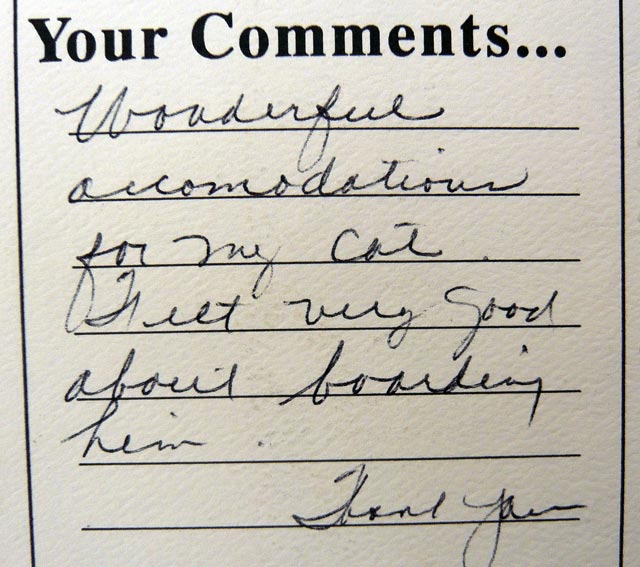 Your Comments...
Wonderful
accomodations
for my cat.
Felt very good
about boarding
him.
Thank You